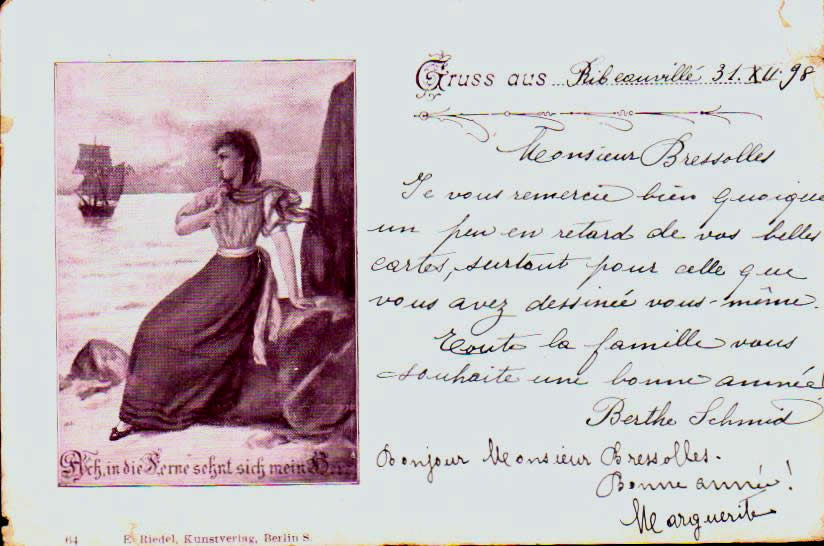 Gruss aus Ribeauvillé 31.XII.98
Monsieur Bressolles
Je vous remercie bien quoique
un peu en retard de vos belles
cartes, surtout pour celle que
vous avez dessinée vous-même.
Toute la famille vous
souhaite une bonne année!
Berthe Schmid
Bonjour Monsieur Bressolles.
Bonne année!
Marguerite
Ach, in die Ferne sehnt sich mein
64 E. Riedel, Kunstverlag, Berlin S.